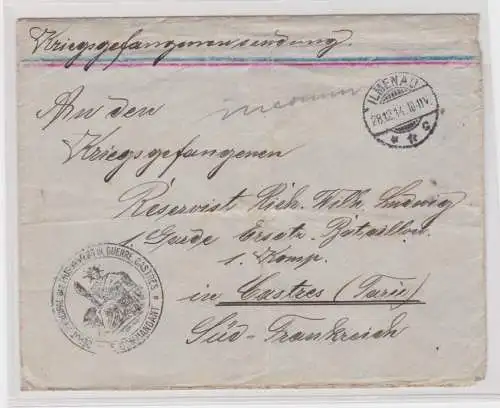 Kriegsgefangenensendung.
An den
ILMENAU
28.12.14. 10-11V.
* * c
Kriegsgefangenen
Réservist Rich. Wilh. Ludwig
1. Garde Ersatz-Bataillon
1. Komp.
in Castres (Tarn)
Süd-Frankreich
GUERRE CASTRES * COMMANDANT